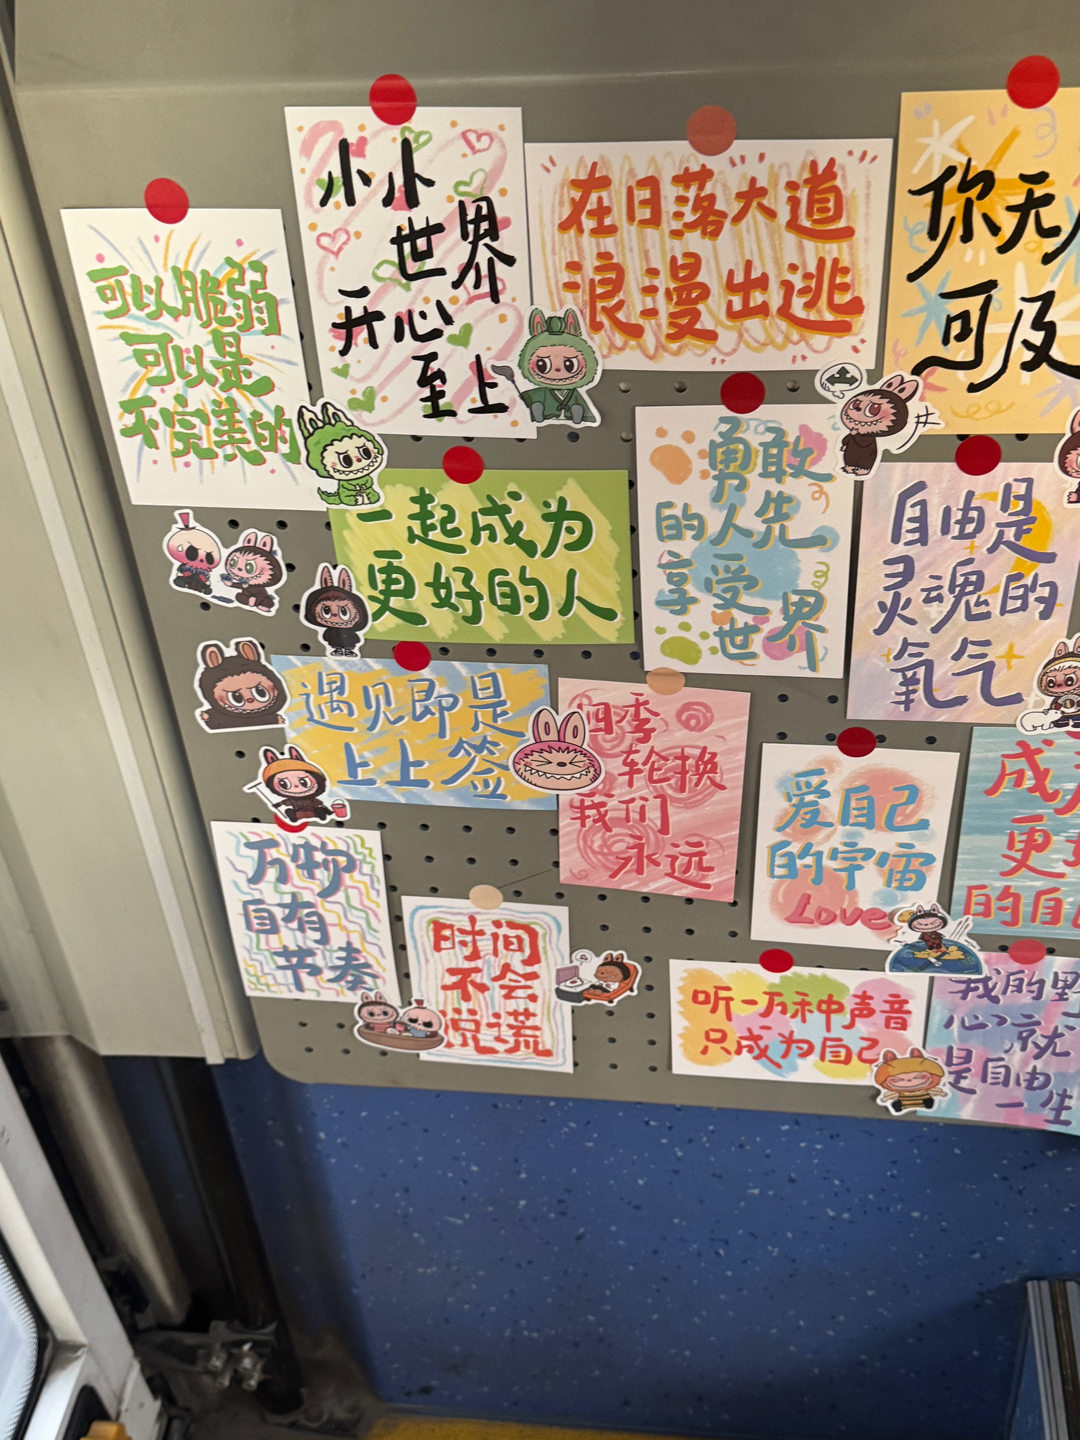 可以脆弱
可以是
不完美的
小小
世界
开心
至上
在日落大道
浪漫出逃
你无
可及
一起成为
更好的人
勇敢
的人先
享受
世界
自由是
灵魂的
氧气
遇见即是
上上签
四季
轮换
我们
永远
爱自己
的宇宙
Love
成
更
的自
万物
自有
节奏
时间
不会
说谎
听一万种声音
只成为自己
我的野
心就
是自由
一生